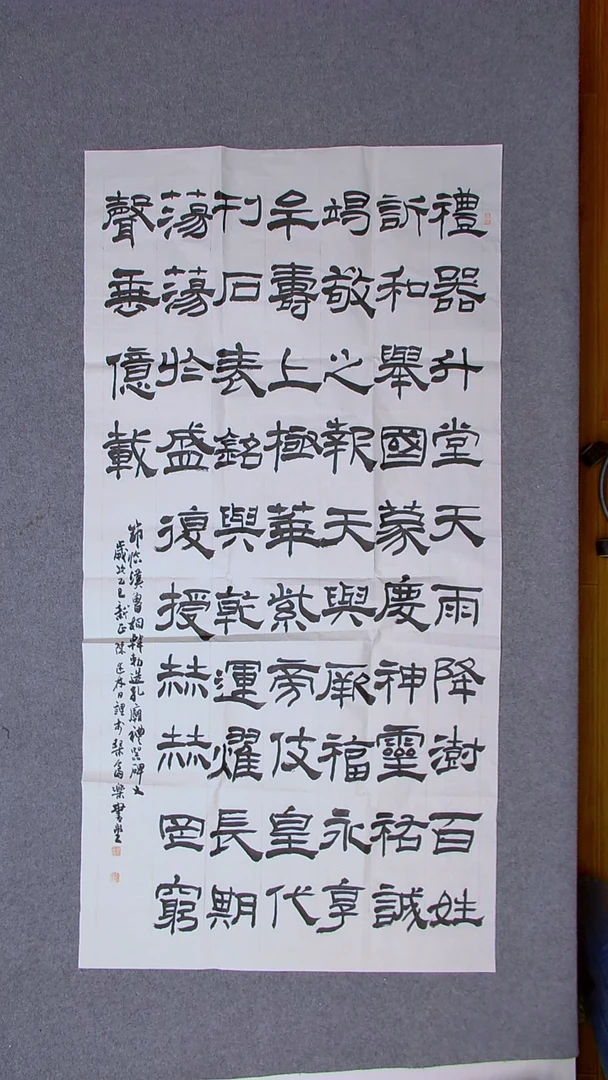 禮器升堂天雨降澍百姓
訢和舉國蒙慶神靈祐誠
竭敬之報天與厥福永享
牟壽上極華紫旁伎皇代
刊石表銘與乾運燿長期
蕩蕩於盛復授赫赫罔窮
聲垂億載
節臨漢魯相韓勑造孔廟禮器碑文
歲次乙巳